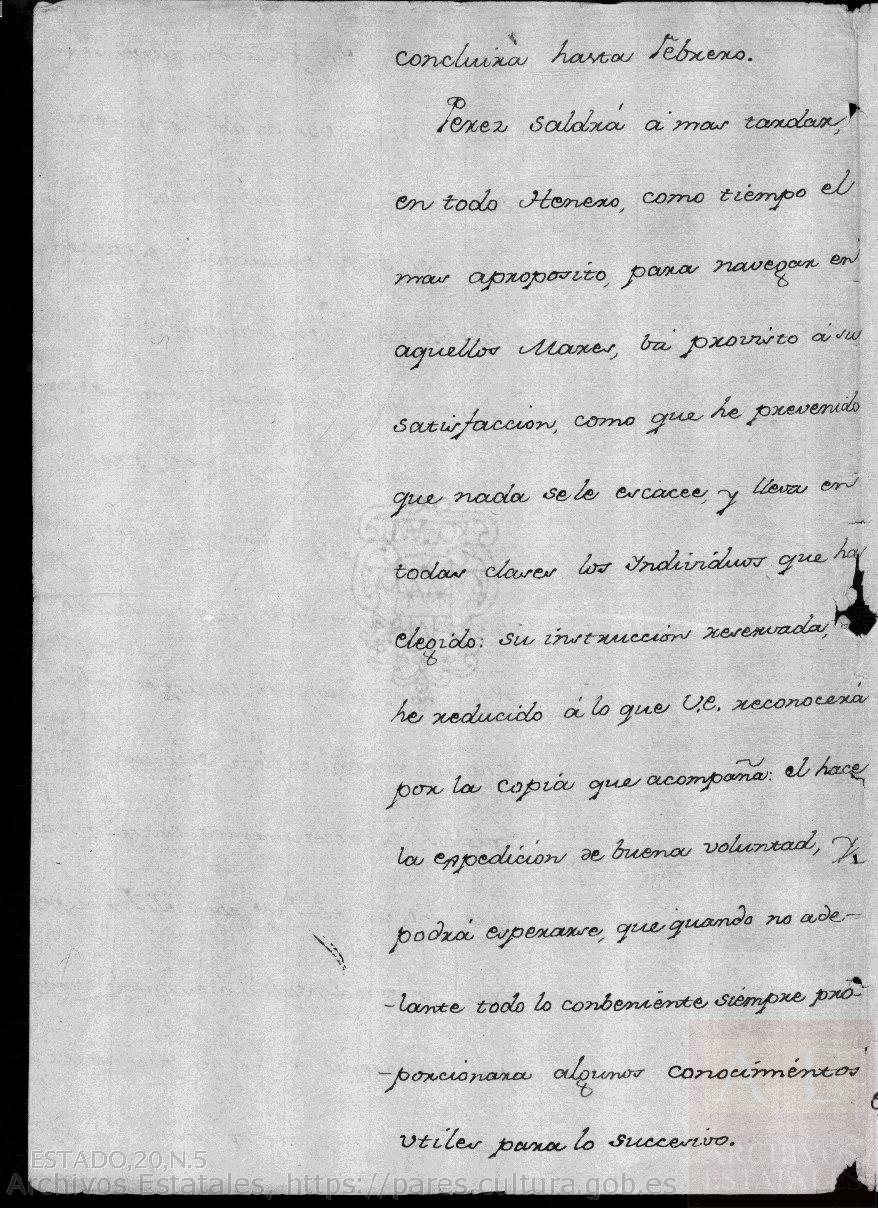 concluirà hasta Febrero.
Perez saldrá á mas tardar,
en todo Henero, como tiempo el
mas aproposito, para navegar en
aquellos Mares, bá provisto á su
satisfaccion, como que he prevenido
que nada se le escacee, y lleva en
todas clases los Yndividuos que ha
elegido: su instruccion reservada,
he reducido á lo que V.E. reconocerá
por la copia que acompaña: el hace
la expedicion de buena voluntad, y
podrá esperarse, que quando no ade-
-lante todo lo conbeniente siempre pro-
-porcionara algunos conocimientos
utiles para lo succesivo.
ESTADO,20,N.5
Archivos Estatales, https://pares.cultura.gob.es
AE
ARCHIVOS
ESTATALES